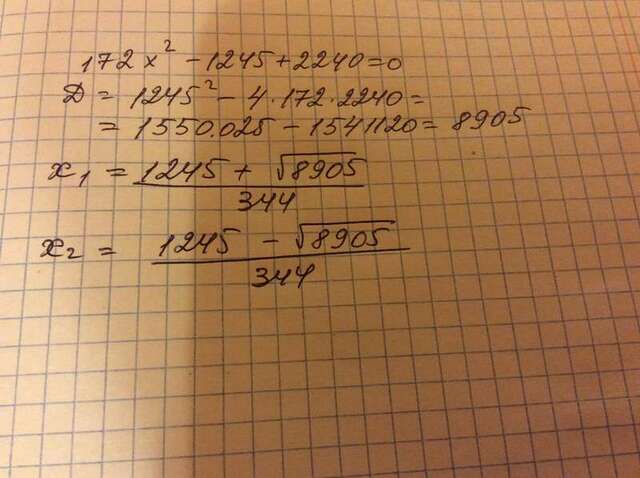 172x² - 1245 + 2240 = 0
Д = 1245² - 4·172·2240 =
= 1550.025 - 1541120 = 8905
x₁ = (1245 + √8905) / 344
x₂ = (1245 - √8905) / 344